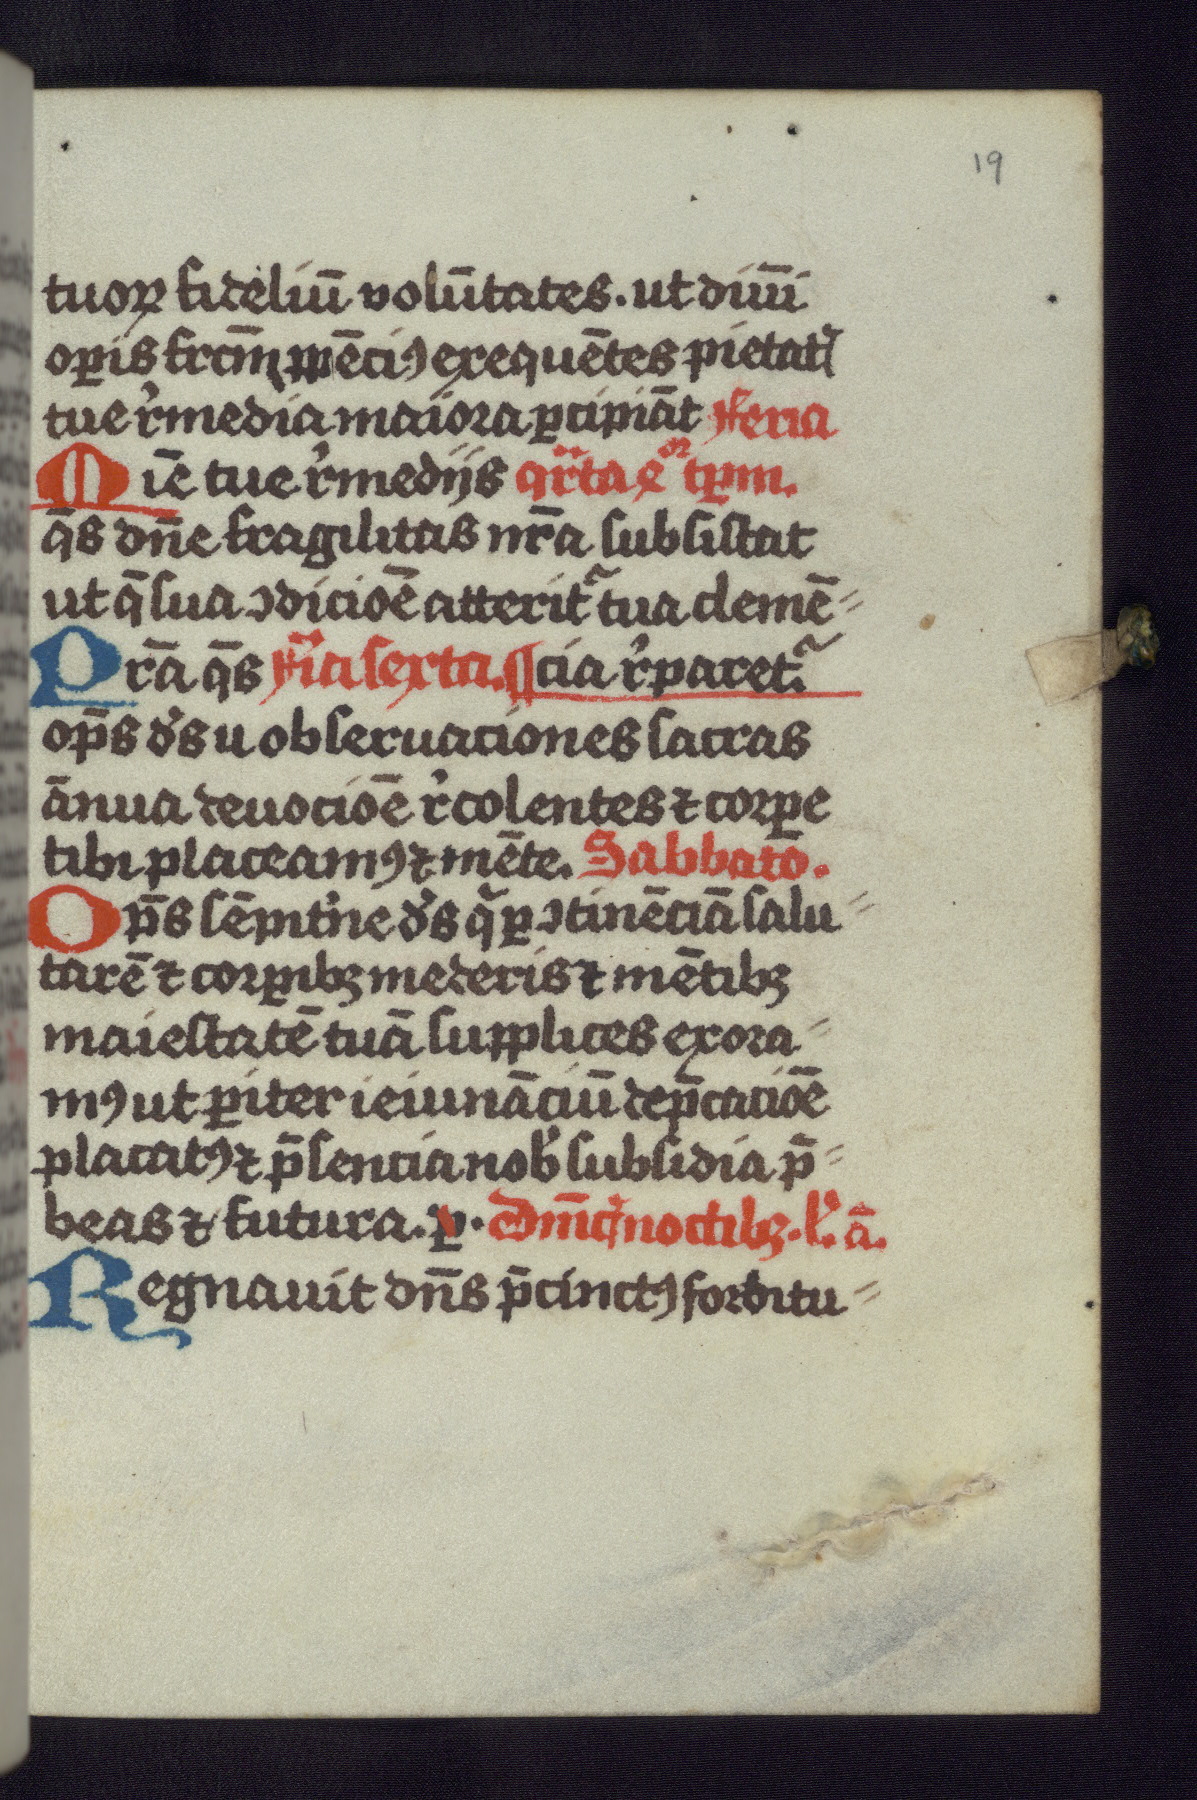 19
tuoꝝ fideliū volūtates. ut diuīi
oꝑis frcm̄ ꝓpēciꝰ exequētes pietatꝭ
tue rͥmedia maiora ꝑcipiāt Feria
Mīe tue rͥmedijs qr̄ta 4ᵒʳ tꝑm.
q̄s dn̄e fragilitas nr̄a subsistat
ut q̄ sua ꝯdicioē atteritᷣ tua clemē-
Prā q̄s fͥia sexta. ¶cia rͥparetᷣ.
op̄s dͥs ut obseruaciones sacras
ānua deuocioē rͥcolentes ⁊ corꝑe
tibi placeamꝰ ⁊ mēte. Sabbato.
Op̄s sēpitͥne dͥs qͥ ꝑ ꝯtinēciā salu-
tarē ⁊ corꝑibꝫ mederis ⁊ mētibꝫ
maiestatē tuā supplices exora-
mꝰ ut ꝑiter ieiunāciū dep̄catioē
placatꝰ ⁊ p̄sencia nob̓ subsidia p̄-
beas ⁊ futura. ꝑ. Dm̄cꝭ noctibꝫ. I. ā.
Regnauit dn̄s p̄cinctꝰ fortitu-